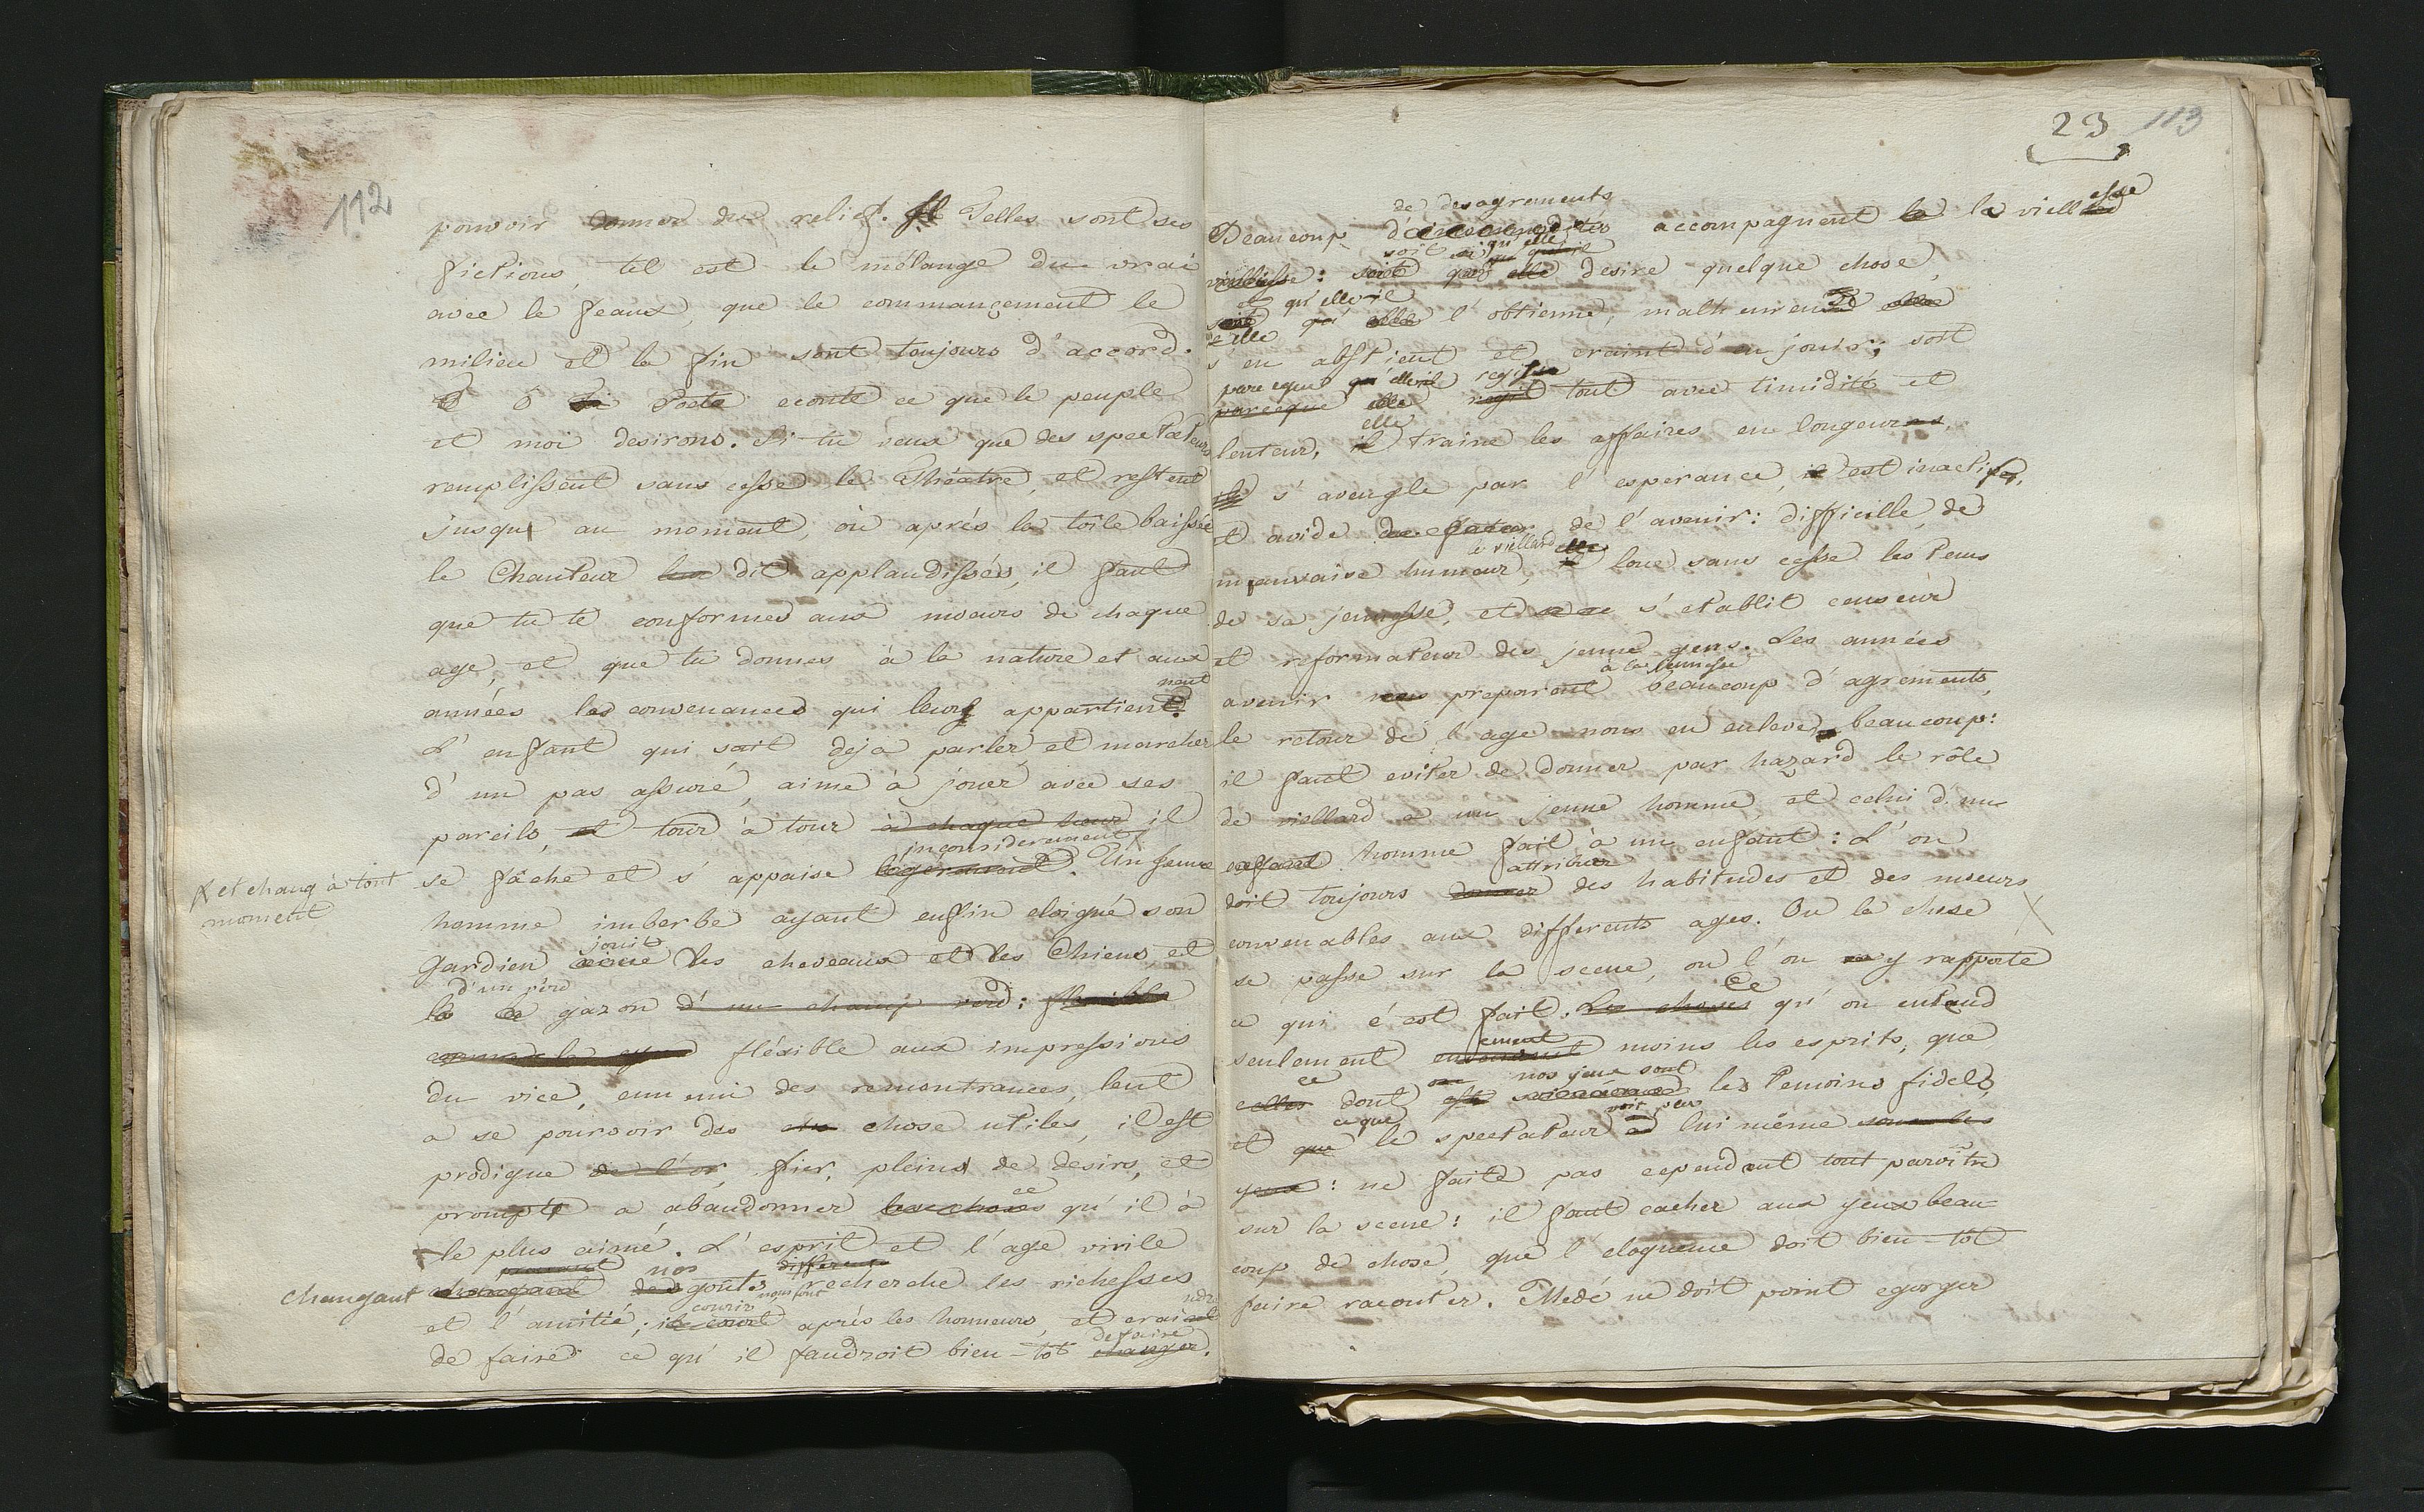 112
pouvoir donner du relief. Il Telles sont ses
fictions, tel est le mélange du vrai
avec le feaux, que le commançement le
milieu et la fin sont toujours d'accord.
ô Poete ecoute ce que le peuple
et moi desirons. Si tu veux que des spectateurs
remplissent sans cesse le Théatre, et restent
jusqu au moment, où aprés la toile baissée
le Chanteur dit applaudissés, il faut
que tu te conformes aux moeurs de chaque
age, et que tu donnes à la nature et aux
nent
années les convenances qui leurs appartient.
L'enfant qui sait deja parler et marcher
d'un pas assuré, aime à jouer avec ses
pareils, et tour à tour à chaque heur il
inconsiderement
se fâche et s'appaise légérement. Un Jeune
et chang à tout
moment
homme imberbe ayant enfin eloigné son
jouit
gardien aime les chevaux et les Chiens, et
d'un verd
la gazon d'un champ verd: flexible
comme la flexible aux impressions
du vice, ennemi des remontrances, lent
a se pourvoir des chose utiles, il est
prodigue de l'or, fier, pleins de desirs, et
ce
prompte a abandonner les choses qu'il à
le plus aimé. L'esprit et l'age virile
nos differents
changeant changeant des goûts nous font recherche les richesses
courir ndre
et l'amitié; il court aprés les honneurs, et craint
de faire
de faire ce qu'il faudroit bien-tôt changer.
23 113
de desagrements
Beaucoup d'incommodités accompagnent la la viellesse
soit qu'elle
viellisse: soit qu'elle desire quelque chose,
et qu'elle il
soit qu' elle l'obtienne, malheureuse elle
elle
s'en abstient et craint d'en jouir; soit
parceque qu'elle il regisse
parceque elle regit tout avec timidité et
elle
lenteur, il traine les affaires en longeurs,
s'aveugle par l'esperance, il est inactifs,
et avide de l'avenir: difficille, de
le viellard elle
mauvaise humeur, il loue sans cesse les tems
de sa jeunesse, et s'etablit censeur
et reformateur des jeune gens. Les années
à la jeunesse
avenir nous preparent beaucoup d'agréments,
le retour de l'age nous en enleve beaucoup:
il faut eviter de donner par hazard le rôle
de viellard a un jeune homme, et celui d'un
enfant homme fait à un enfant: L'on
attribuer
doit toujours donner des habitudes et des moeurs
convenables aux differents ages. Ou la chose
se passe sur la scene, ou l'on y rapporte
Ce
ce qui c'est fait. Les choses qu'on entend
ement
seulement moins les esprits, que
ce nos yeux sont
celles dont les temoins fidels,
ce que voit par
et que le spectateur lui même
yeux: ne faite pas cependent tout paroitre
sur la scene: il faut cacher aux yeux beau-
coup de chose, que l'eloquence doit bien-tôt
faire raconter. Medé ne doit point egorger